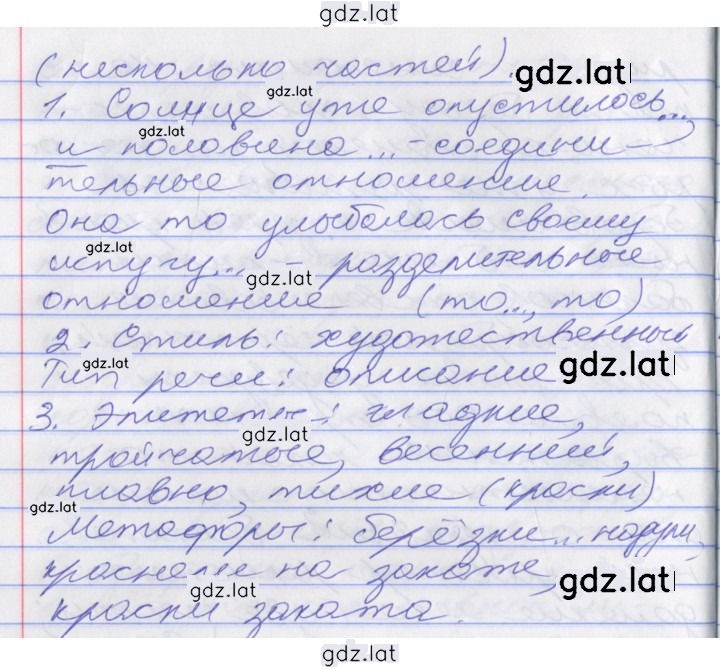 gdz.lat
(несколько частей).
gdz.lat
gdz.lat
1. Солнце уже опустилось...
gdz.lat
и половина... - соедини-
тельные отношение.
Она то улыбалась своему
gdz.lat
испугу... - разделительные
gdz.lat
отношение (то..., то)
2. Стиль: художественный
gdz.lat
Тип речи: описание
gdz.lat
3. Эпитеты: гладкие,
gdz.lat
тройчатые, весенний,
плавно, тихие (краски)
gdz.lat
Метафоры: берёзки...
краснели на закате,
gdz.lat
gdz.lat
краски заката.
gdz.lat